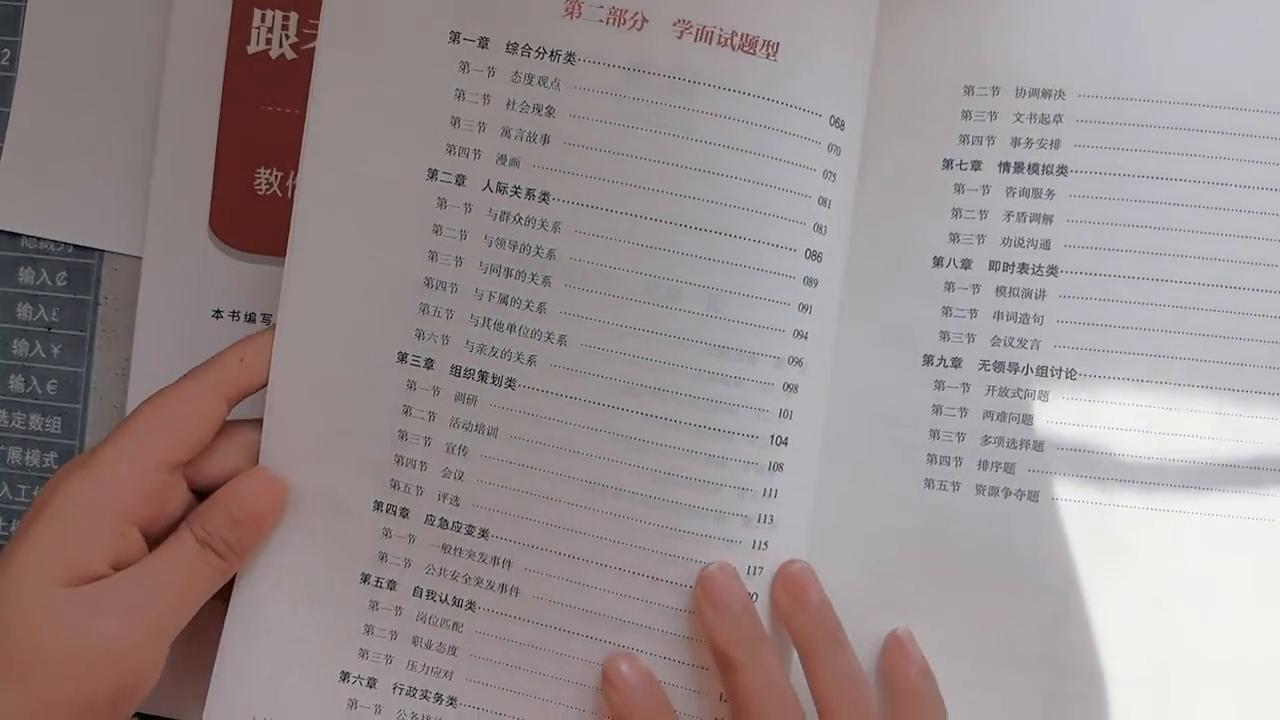 2
输入₡
输入£
输入¥
输入€
选定数组
扩展模式
跟
教
本书编写
第二部分 学面试题型
第一章 综合分析类 068
第一节 态度观点 070
第二节 社会现象 075
第三节 寓言故事 081
第四节 漫画 083
第二章 人际关系类 086
第一节 与群众的关系 089
第二节 与领导的关系 091
第三节 与同事的关系 094
第四节 与下属的关系 096
第五节 与其他单位的关系 098
第六节 与亲友的关系 101
第三章 组织策划类 104
第一节 调研 108
第二节 活动培训 111
第三节 宣传 113
第四节 会议 115
第五节 评选 117
第四章 应急应变类
第一节 一般性突发事件
第二节 公共安全突发事件
第五章 自我认知类
第一节 岗位匹配
第二节 职业态度
第三节 压力应对
第六章 行政实务类
第一节 公务接待
第二节 协调解决
第三节 文书起草
第四节 事务安排
第七章 情景模拟类
第一节 咨询服务
第二节 矛盾调解
第三节 劝说沟通
第八章 即时表达类
第一节 模拟演讲
第二节 串词造句
第三节 会议发言
第九章 无领导小组讨论
第一节 开放式问题
第二节 两难问题
第三节 多项选择题
第四节 排序题
第五节 资源争夺题